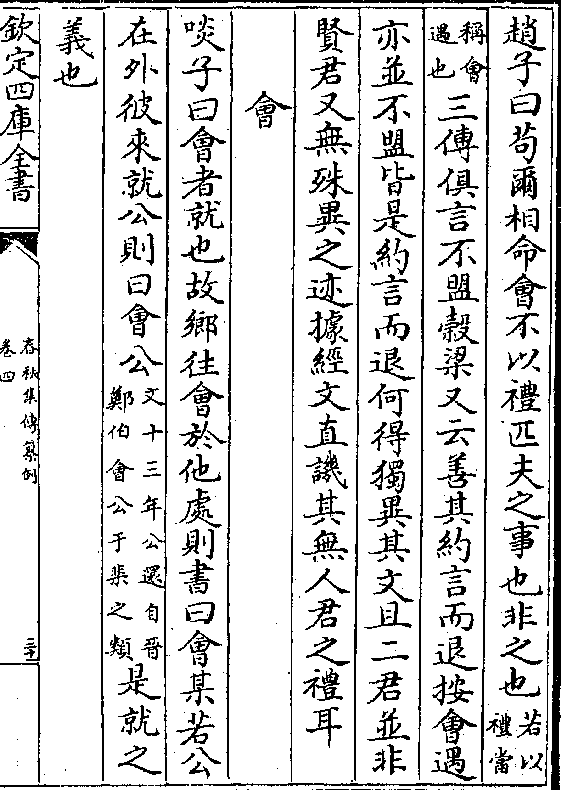 趙子曰茍爾相命會不以禮匹夫之事也非之也若以禮當
稱會遇也三傳俱言不盟穀梁又云善其約言而退按會遇
亦並不盟皆是約言而退何得獨異其文且二君並非
賢君又無殊異之迹據經文直譏其無人君之禮耳
會
啖子曰會者就也故鄉往會於他處則書曰會某若公
在外彼來就公則曰會公文十三年公還自晉鄭伯會公于棐之類是就之
義也
欽定四庫全書
春秋集傳纂例
卷四